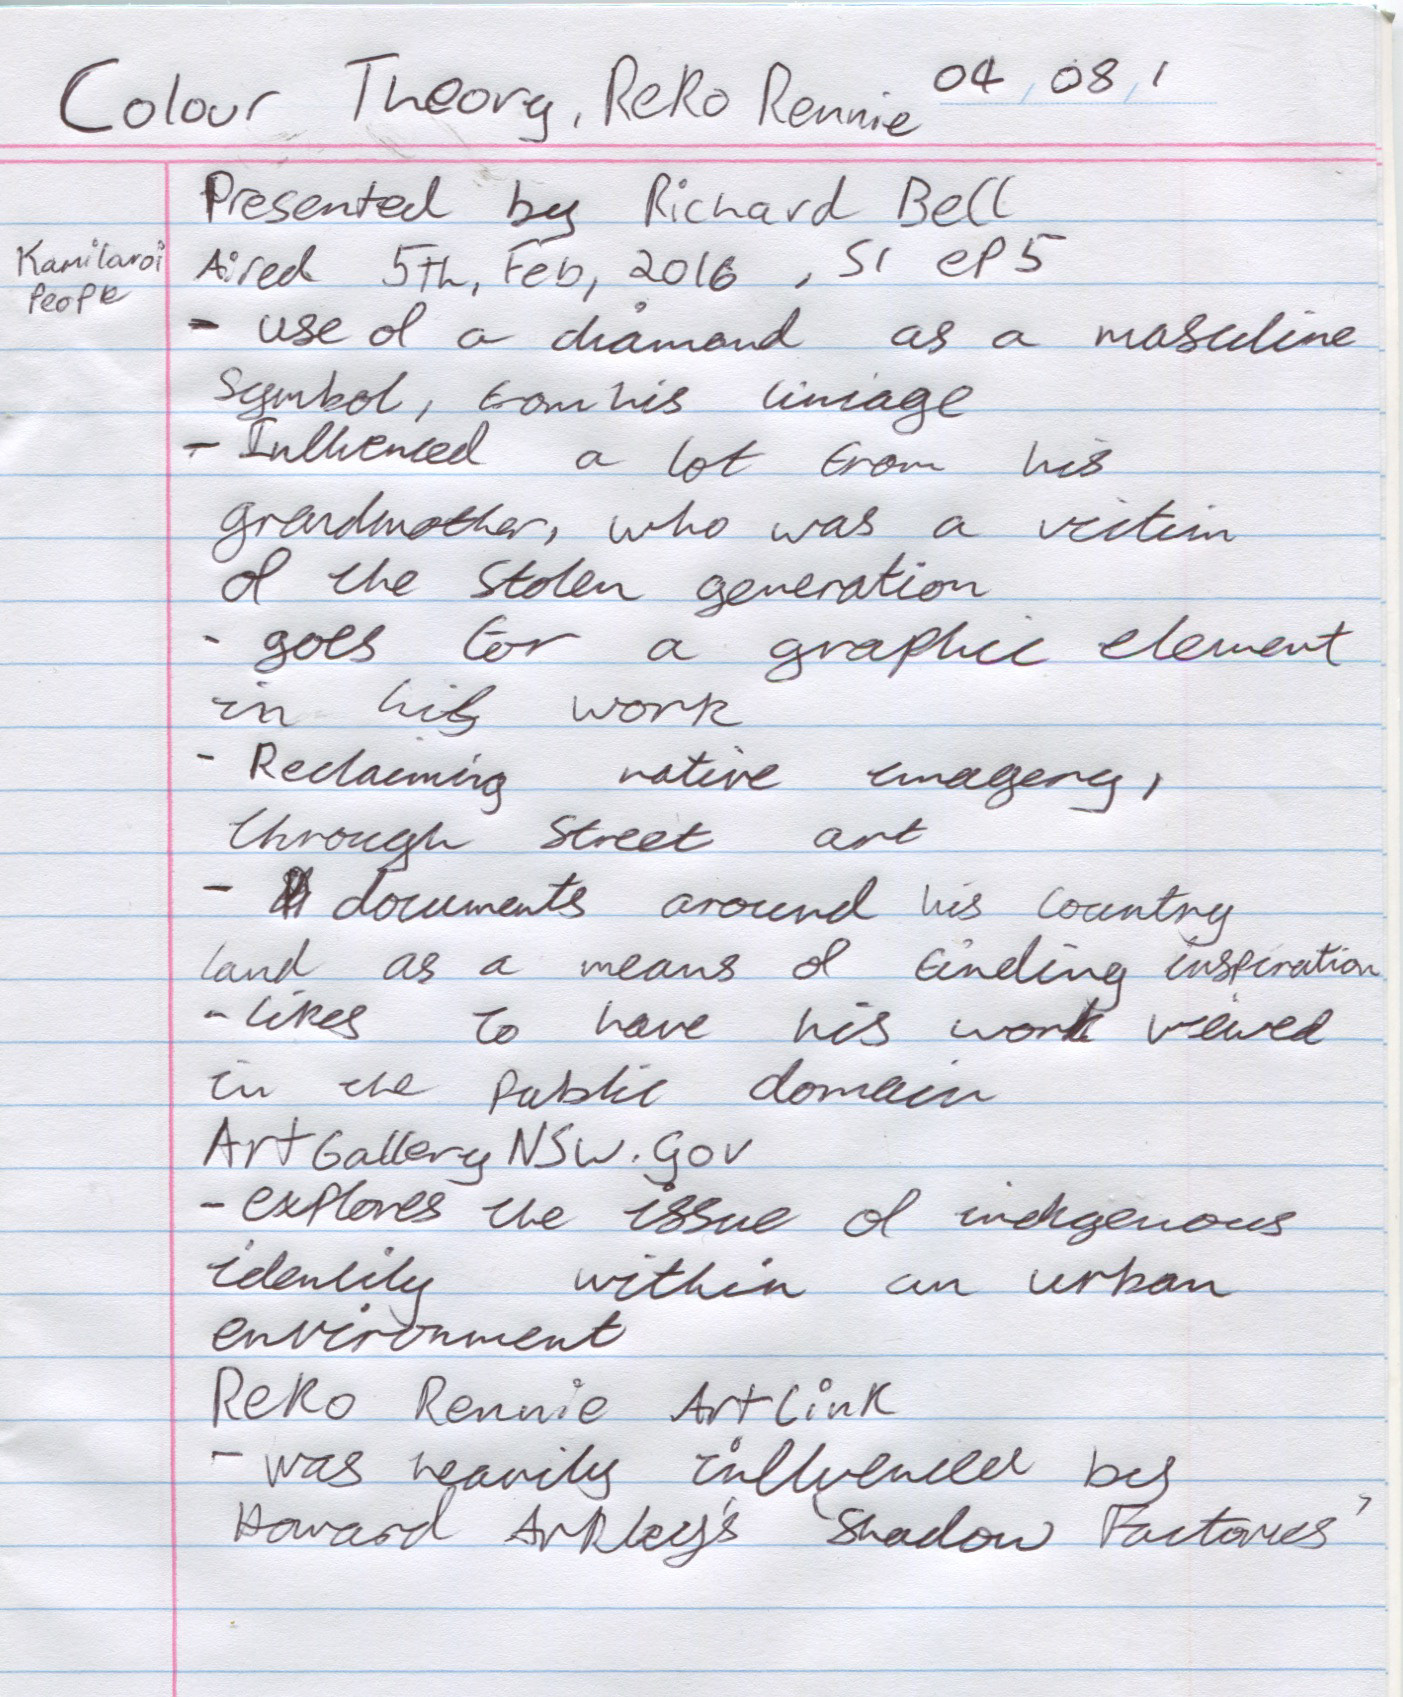 Colour Theory, Reko Rennie 04, 08, 1
Presented by Richard Bell
Kamilaroi People
Aired 5th, Feb, 2016, S1 ep5
- use of a diamond as a masculine
symbol, from his liniage
- Influenced a lot from his
grandmother, who was a victim
of the stolen generation
- goes for a graphic element
in his work
- Reclaiming native imagery,
through street art
- documents around his country
land as a means of finding inspiration
- likes to have his work viewed
in the public domain
ArtGalleryNSW.gov
- explores the issue of indigenous
identity within an urban
environment
Reko Rennie Artlink
- was heavily influenced by
Howard Arkley's 'Shadow Factories'